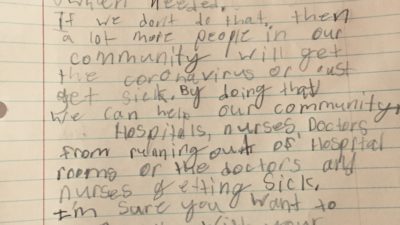 when needed.
if we don't do that, then
a lot more people in our
community will get
the coronavirus or just
get sick. By doing that
we can help our community,
Hospitals, nurses, Doctors
from running out of Hospital
rooms or the doctors and
nurses getting sick.
I'm sure you want to
with your